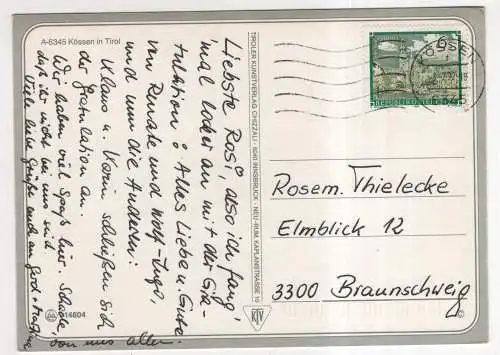 A-6345 Kössen in Tirol
Liebste Rosi, also ich fang'
mal locker an mit der Gra-
tulation: Alles Liebe u. Gute
von Renate und Wolf-Ingo,
und nun die Anderen:
Klaus u. Karin schließen sich
der Gratulation an.
Wir haben viel Spaß hier. Schade,
daß ihr nicht bei uns seid
Viele liebe Grüße auch an Gerd +
von uns allen.
314804
TIROLER KUNSTVERLAG CHIZZALI · 6040 INNSBRUCK - NEU-RUM, KAPLANSTRASSE 10
KTV
REPUBLIK ÖSTERREICH
Rosem. Thielecke
Elmblick 12
3300 Braunschweig